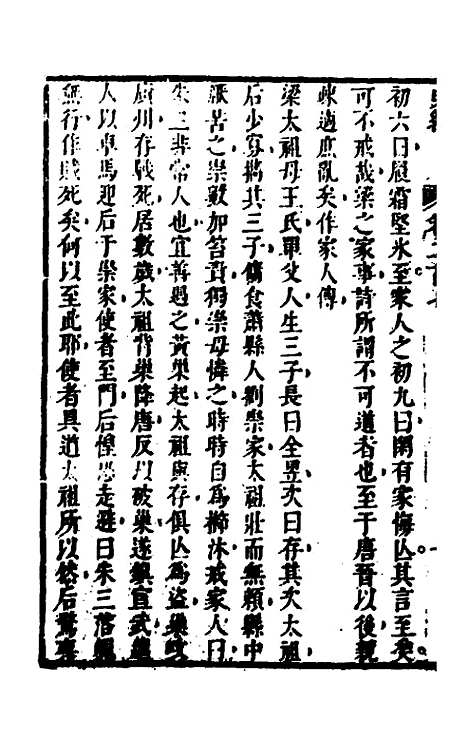 初六曰履霜堅氷至家人之初九曰閑有家悔亾其言至矣
可不戒哉梁之家事詩所謂不可道者也至于唐晉以後親
疎適庶亂矣作家人傳
梁太祖母王氏單父人生三子長曰全昱次曰存其次太祖
后少寡攜其三子傭食蕭縣人劉崇家太祖壯而無賴縣中
厭苦之崇數加笞責獨崇母憐之時時自為櫛沐戒家人曰
朱三非常人也宜善遇之黃巢起太祖與存俱亾為盜從攻
廣州存戰死居數歲太祖背巢降唐反以破巢遂鎮宣武
人以車馬迎后于崇家使者至門后惶恐走避曰朱三落魄
無行作賊死矣何以至此耶使者具道太祖所以然后驚喜